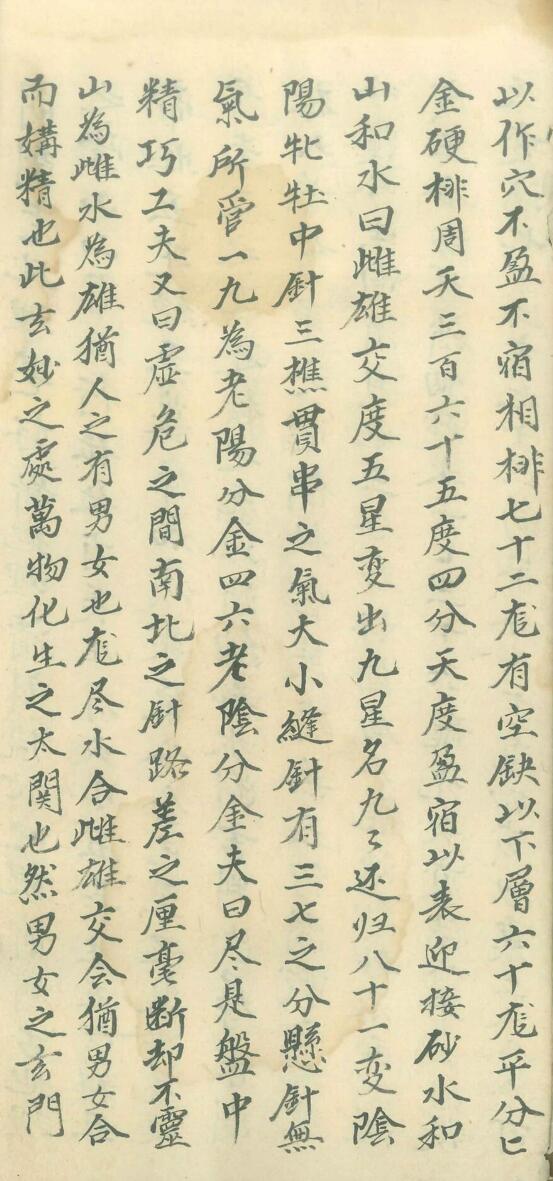 以作穴不盈不宿相排七十二尨有空缺以下層六十尨平分匕
金硬排周天三百六十五度四分天度盈宿以表迎接砂水和
山和水曰雌雄交度五星变出九星名九〻还归八十一变陰
陽牝牡中針三樵貫串之氣大小縫針有三七之分懸針無
氣所管一九為老陽分金四六老陰分金夫曰尽是盤中
精巧工夫又曰虛危之間南北之針路差之厘毫断却不靈
山為雌水為雄猶人之有男女也尨尽水合雌雄交会猶男女合
而媾精也此玄妙之處萬物化生之太関也然男女之玄門